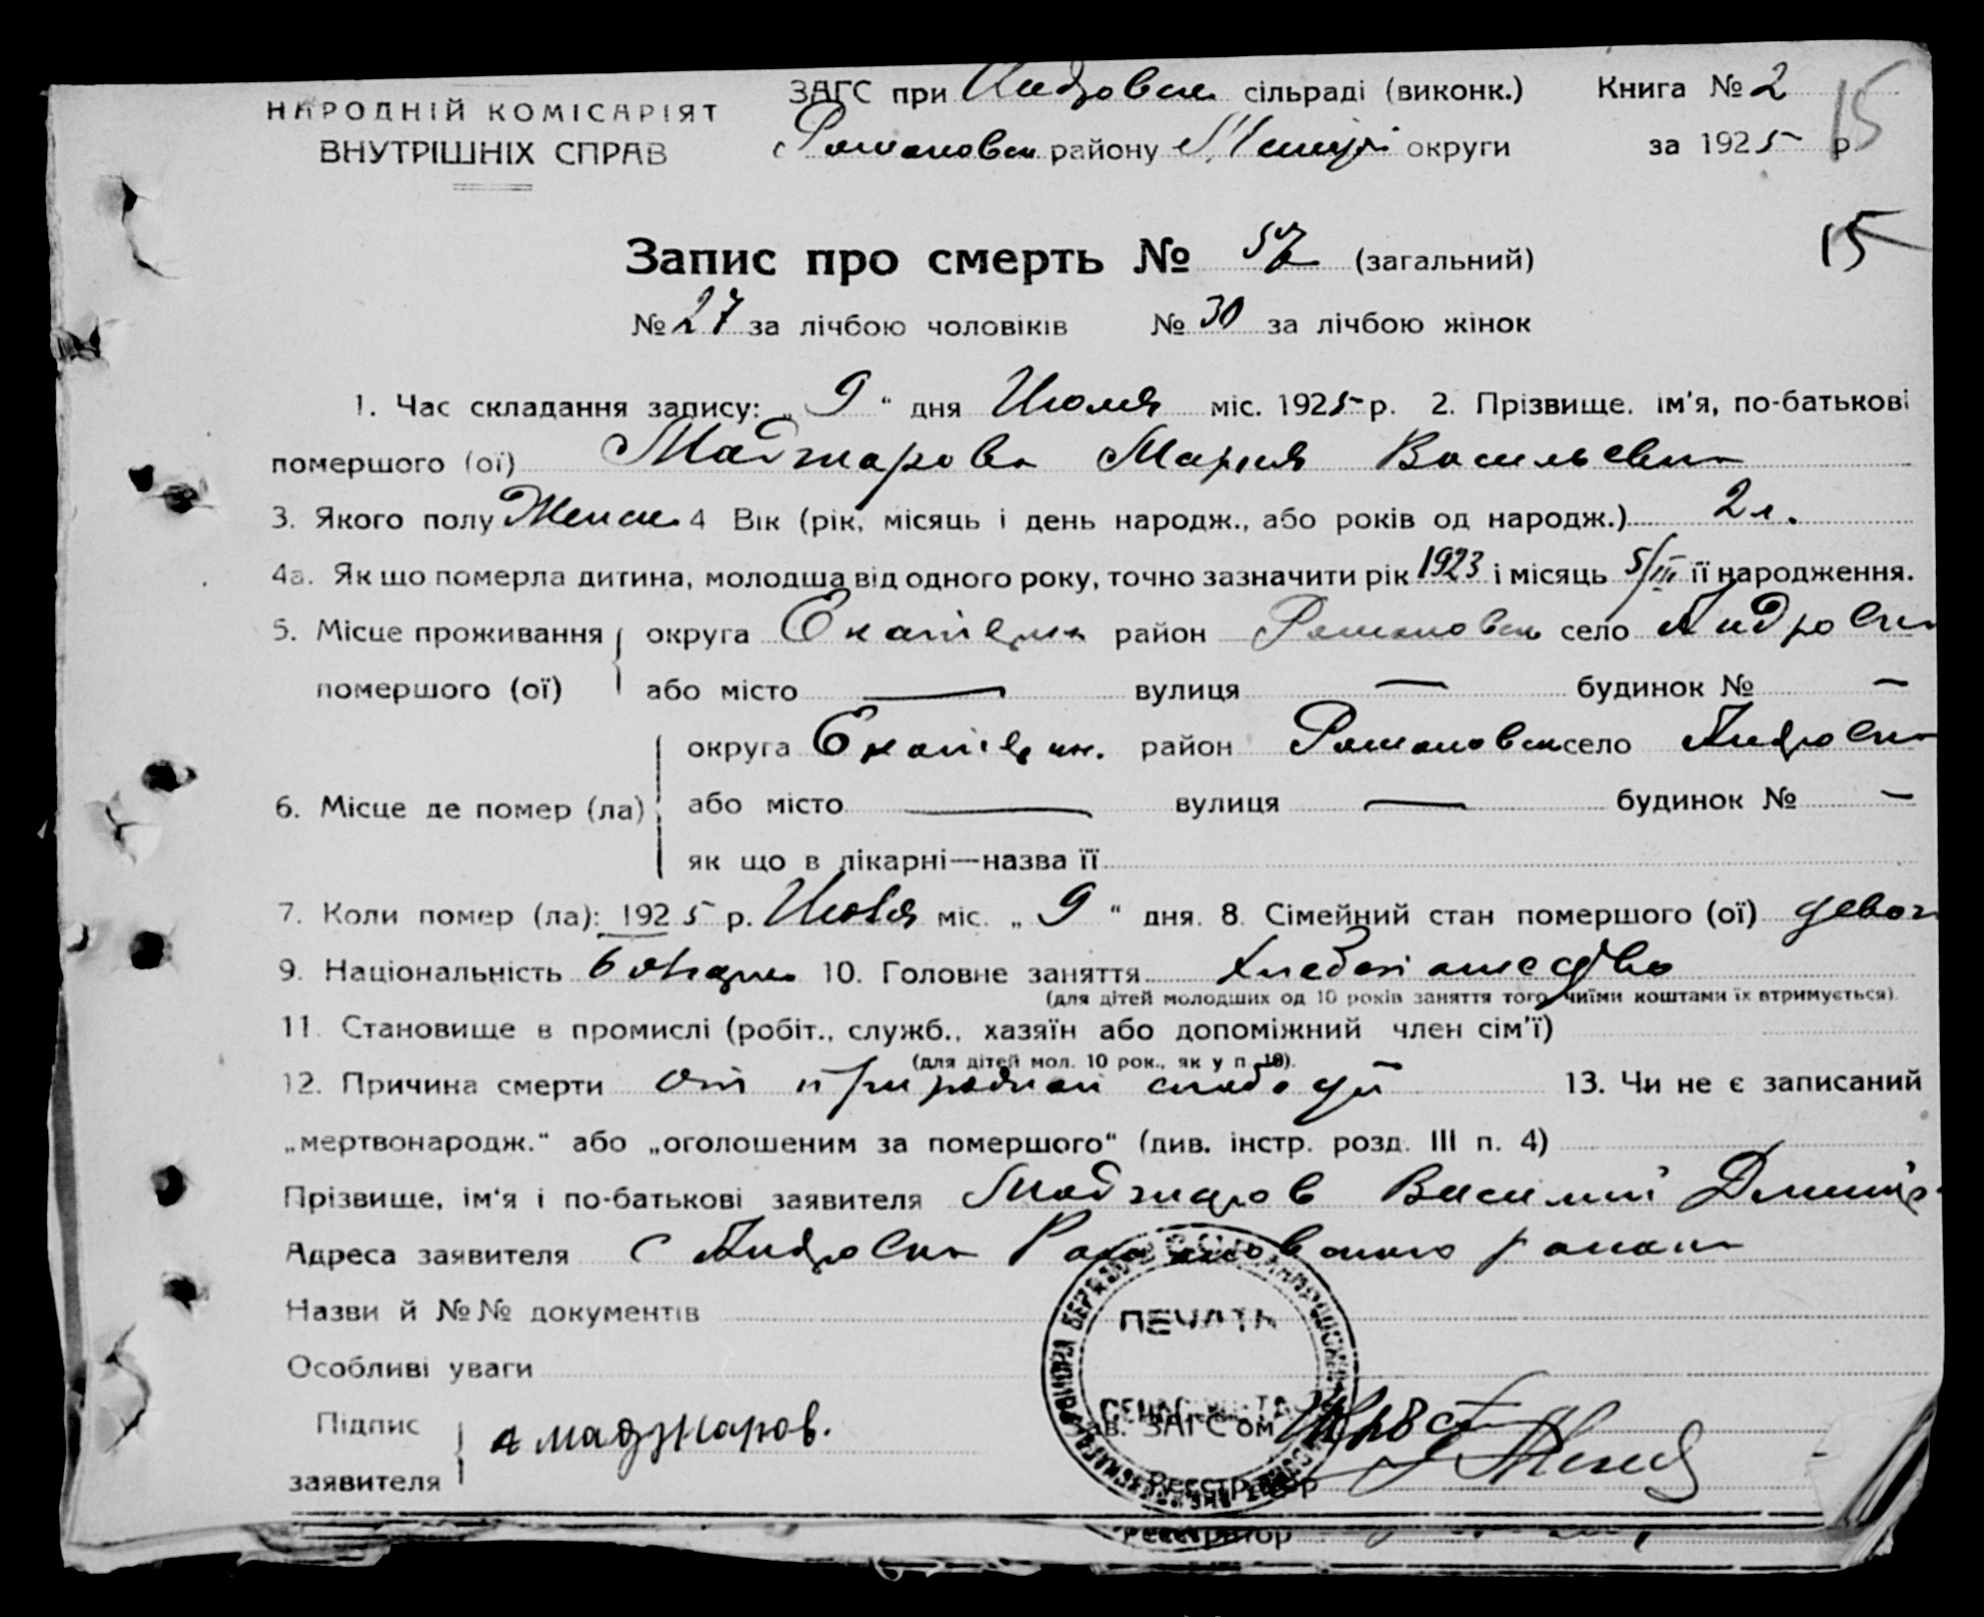 НАРОДНІЙ КОМІСАРІЯТ
ВНУТРІШНІХ СПРАВ
ЗАГС при Андровск. сільраді (виконк.)
Романовск району округи
Книга № 2
за 1925 р.
15
15
Запис про смерть № 57 (загальний)
№ 27 за лічбою чоловіків № 30 за лічбою жінок
1. Час складання запису: „ 9 “ дня Июля міс. 1925 р. 2. Прізвище, ім'я, по-батькові
помершого (ої) Маджарова Мария Васильевна
3. Якого полу Женск. 4 Вік (рік, місяць і день народж., або років од народж.) 2 л.
4а. Як що померла дитина, молодша від одного року, точно зазначити рік 1923 і місяць 5/III її народження.
5. Місце проживання округа район Романовск село Андровка
помершого (ої) або місто — вулиця — будинок № —
округа район Романовск село Андровка
6. Місце де помер (ла) або місто — вулиця — будинок № —
як що в лікарні—назва її
7. Коли помер (ла): 1925 р. Июля міс. „ 9 “ дня. 8. Сімейний стан помершого (ої) девоч
9. Національність болгарка 10. Головне заняття хлебопашество
(для дітей молодших од 10 років заняття того, чиїми коштами їх втримується).
11. Становище в промислі (робіт., служб., хазяїн або допоміжний член сім'ї)
(для дітей мол. 10 рок., як у п. 10).
12. Причина смерти от природной слабости 13. Чи не є записаний
„мертвонародж.“ або „оголошеним за помершого“ (див. інстр. розд. III п. 4)
Прізвище, ім'я і по-батькові заявителя Маджаров Василий Дмитр.
Адреса заявителя с Андровка Романовского района
Назви й №№ документів
Особливі уваги
ПЕЧАТЬ
Підпис
заявителя
маджаров.
Зав. ЗАГС'ом
Реєстратор
Реєстратор